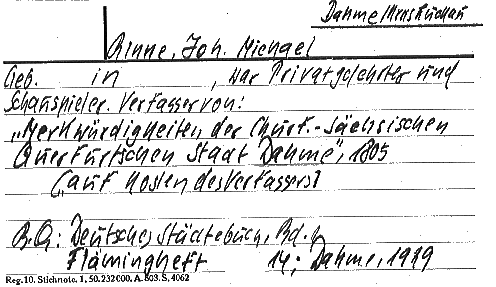 Dahme/
Rinne, Joh. Michael
Geb. in , war Privatgelehrter und
Schauspieler. Verfasser von:
„Merkwürdigkeiten der Churf.-Sächsischen
Querfurtschen Stadt Dahme", 1805
(auf Kosten des Verfassers)
B.Q.: Deutsches Städtebuch, Bd. 1
Flämingheft 14: Dahme, 1929
Reg.10. Stichnote. 1, 50.232000. A. 803. S, 4062